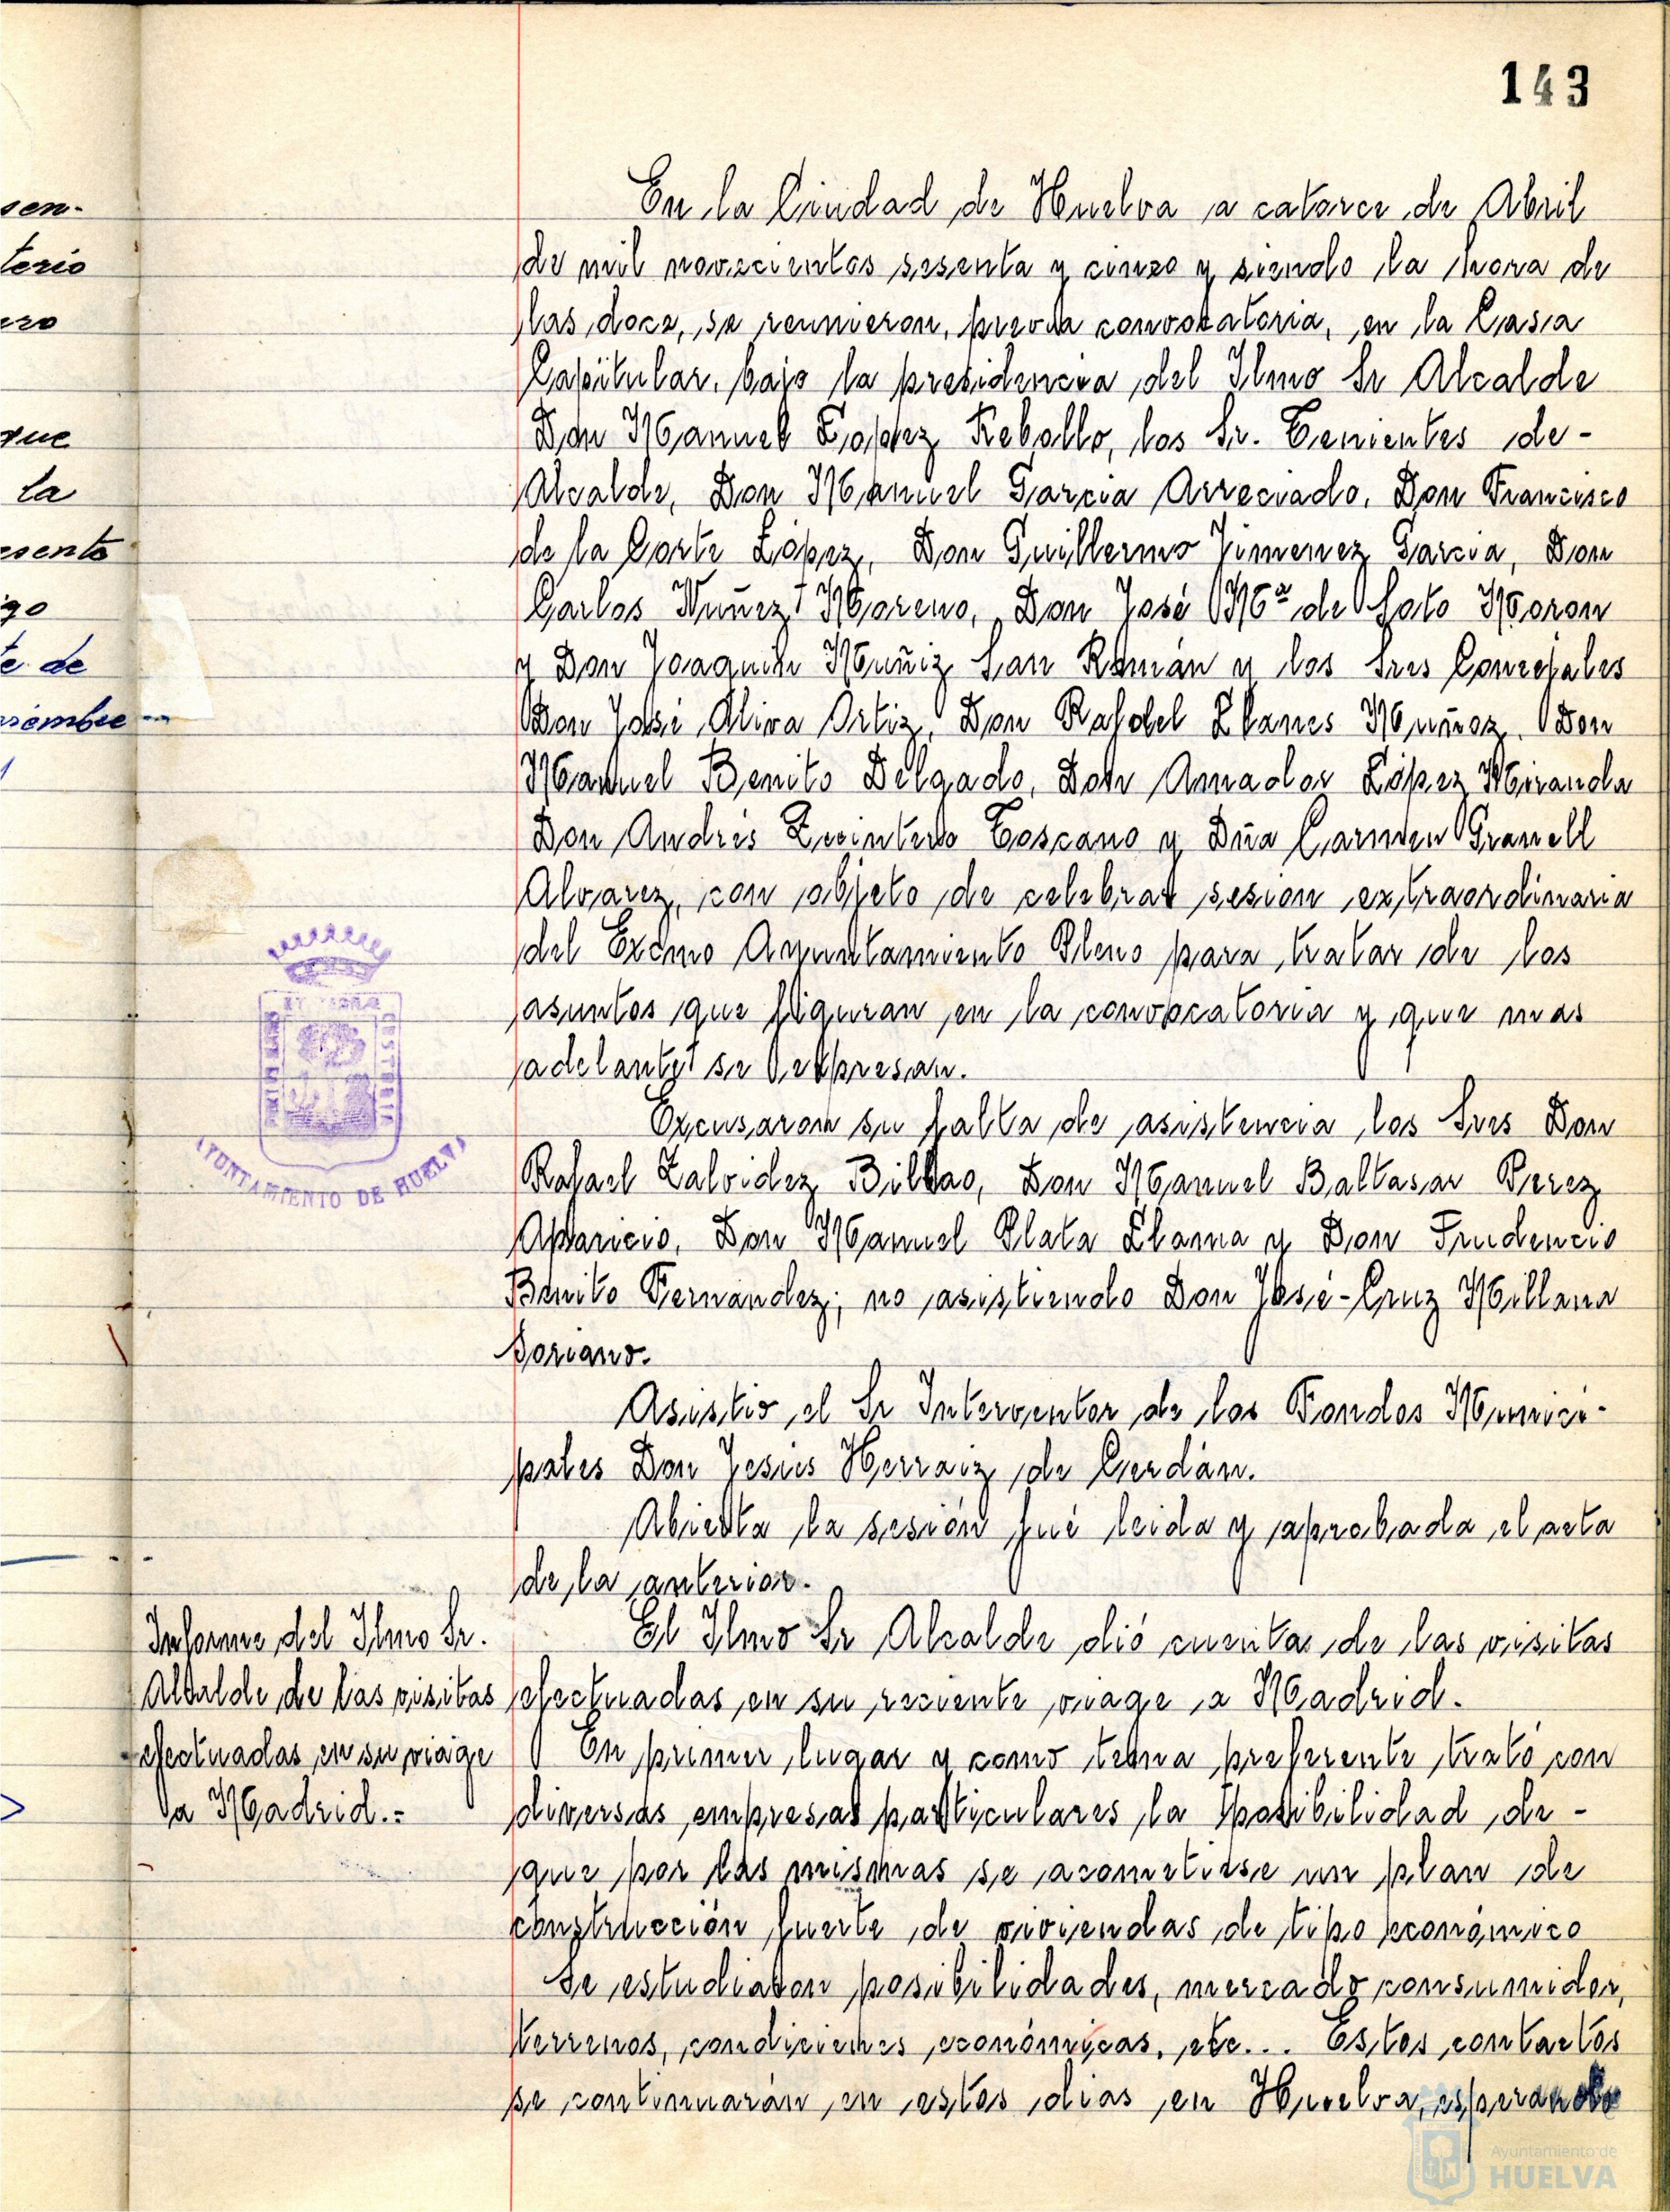 143
sen-
terio
ero
que
la
esente
igo
te de
viembre
En la Ciudad de Huelva a catorce de Abril
de mil novecientos sesenta y cinco y siendo la hora de
las doce, se reunieron, previa convocatoria, en la Casa
Capitular, bajo la presidencia del Ilmo Sr Alcalde
Don Manuel Lopez Rebollo, los Sr. Tenientes de-
Alcalde, Don Manuel Garcia Arreciado, Don Francisco
de la Corte López, Don Guillermo Jimenez Garcia, Don
Carlos Nuñez Moreno, Don José Mª de Soto Moron
y Don Joaquin Muñiz San Román y los Sres Concejales
Don José Oliva Ortiz, Don Rafael Llanes Muñoz, Don
Manuel Benito Delgado, Don Amador López Miranda
Don Andrés Quintero Toscano y Dña Carmen Granell
Alvarez, con objeto de celebrar sesion extraordinaria
del Excmo Ayuntamiento Pleno para tratar de los
asuntos que figuran en la convocatoria y que mas
adelante se expresan.
Excusaron su falta de asistencia los Sres Don
Rafael Zalvidez Bilbao, Don Manuel Baltasar Perez
Aparicio, Don Manuel Plata Llanna y Don Prudencio
Benito Fernández; no asistiendo Don José-Cruz Millana
Soriano.
Asistió el Sr Interventor de los Fondos Munici-
pales Don Jesús Herraiz de Cerdán.
Abierta la sesión fué leida y aprobada el acta
de la anterior.
Informe del Ilmo Sr.
Alcalde de las visitas
efectuadas en su viage
a Madrid.-
El Ilmo Sr Alcalde dió cuenta de las visitas
efectuadas en su reciente viage a Madrid.
En primer lugar y como tema preferente trató con
diversas empresas particulares la posibilidad de-
que por las mismas se acometiese un plan de
construcción fuerte de viviendas de tipo económico
Se estudiaron posibilidades, mercado consumidor,
terrenos, condiciones económicas, etc... Estos contactos
se continuarán en estos dias en Huelva, esperando
AYUNTAMIENTO DE HUELVA
Ayuntamiento de
HUELVA